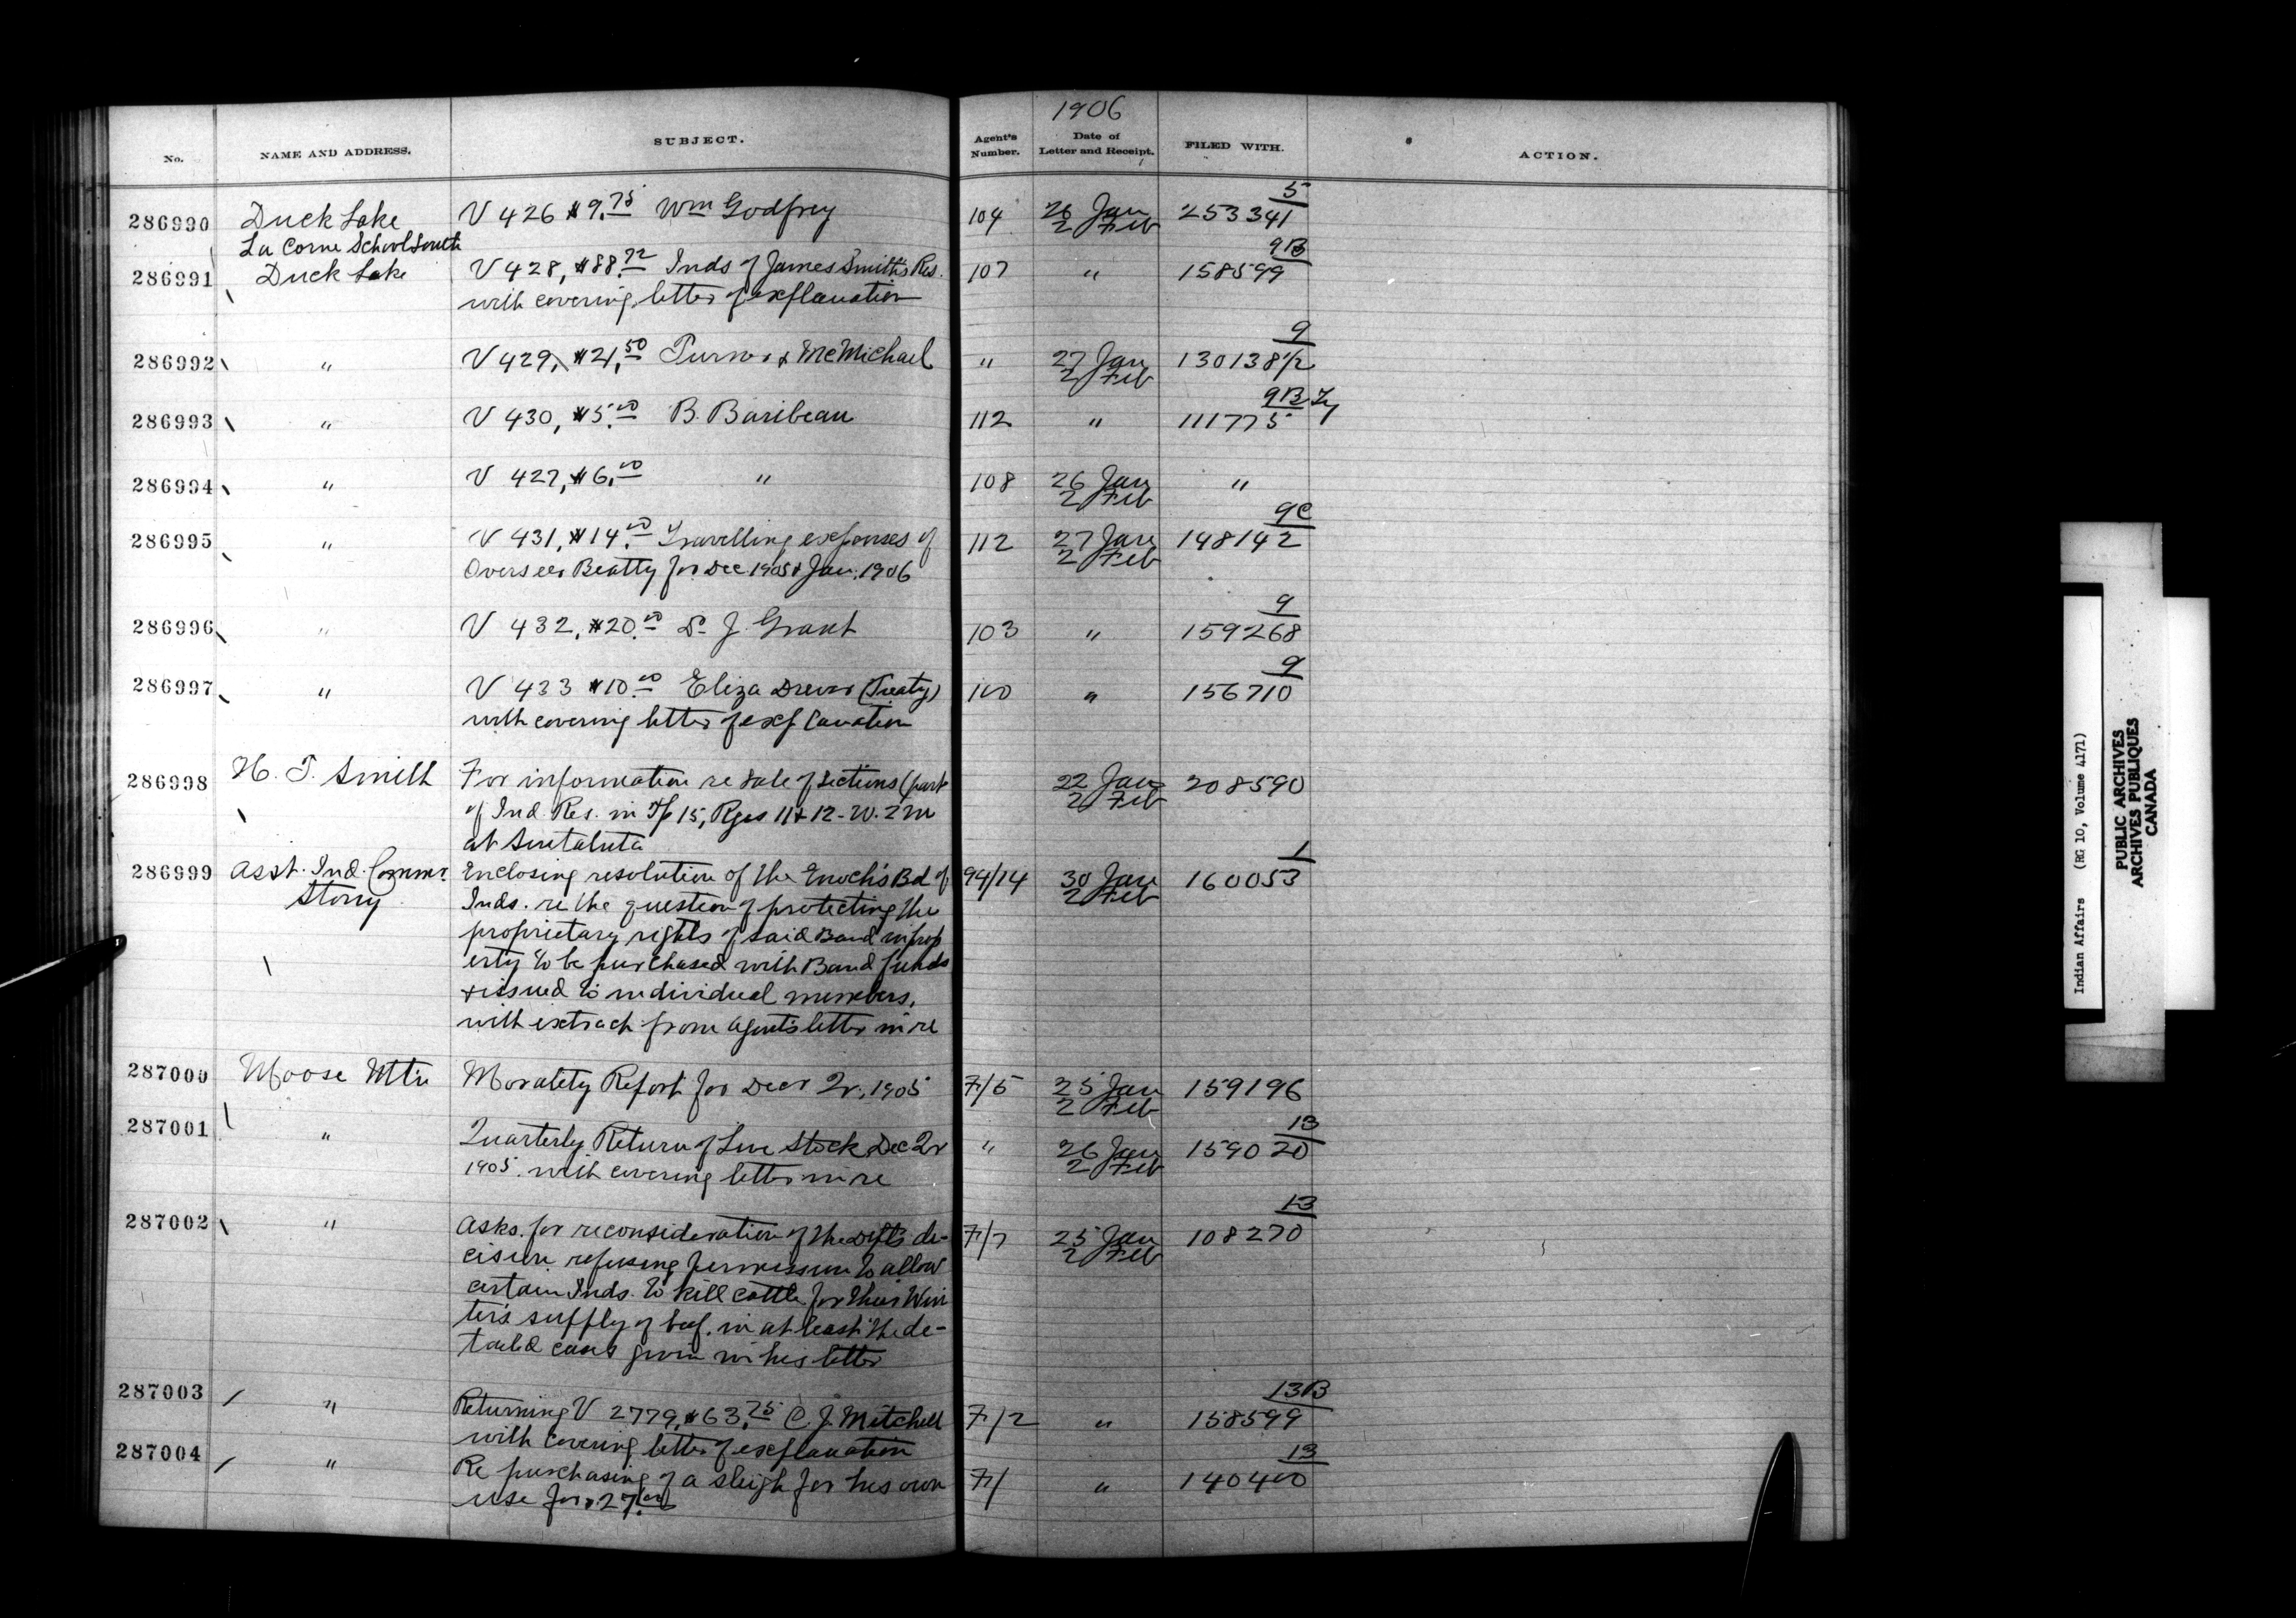 1906
No.
NAME AND ADDRESS.
SUBJECT.
Agent's Number.
Date of Letter and Receipt.
FILED WITH.
ACTION.
286990 Duck Lake V 426 $9.75 Wm Godfrey 104 26 Jan 2 Feb 253341 5
La Corne School South
286991 Duck Lake V 428, $88.72 Inds of James Smith's Res. 107 " 158599 9B
with covering letter of explanation
286992 " V 429, $21.50 Turner & McMichael " 27 Jan 2 Feb 130138½ 9
286993 " V 430, $5.00 B. Baribeau 112 " 111775 9B
286994 " V 427, $6.00 " 108 26 Jan 2 Feb "
286995 " V 431, $14.00 Travelling expenses of 112 27 Jan 2 Feb 148142 9C
Overseer Beatty for Dec 1905 & Jan. 1906
286996 " V 432, $20.00 J. Grant 103 " 159268 9
286997 " V 433 $10.00 Eliza Drever (Treaty) 100 " 156710 9
with covering letter of explanation
286998 H. T. Smith For information re sale of sections (part 22 Jan 2 Feb 208590
of Ind. Res. in Tp 15, Rges 11 & 12 - W. 2 M
at Sintaluta
286999 Asst. Ind. Commr. Enclosing resolution of the Enoch's Bd of 94/14 30 Jan 2 Feb 160053 1
Stony Inds. re the question of protecting the
proprietary rights of said Band in prop
erty to be purchased with Band funds
& issued to individual members,
with extract from Agent's letter in re
287000 Moose Mtn Morality Report for Decr Qr, 1905 F/5 25 Jan 2 Feb 159196
287001 " Quarterly Return of Live Stock Dec Qr " 26 Jan 2 Feb 159020 13
1905. with covering letter in re
287002 " Asks for reconsideration of the Dept's de- F/7 25 Jan 2 Feb 108270 13
cision refusing permission to allow
certain Inds. to kill cattle for their Win
ter's supply of beef, in at least the de-
tailed cases given in his letter
287003 " Returning V 2779, $63.75 C. J. Mitchell F/2 " 158599 13B
with covering letter of explanation
287004 " Re purchasing of a sleigh for his own F/ " 140400 13
use for $27.00
Indian Affairs (RG 10, Volume 4171)
PUBLIC ARCHIVES
ARCHIVES PUBLIQUES
CANADA